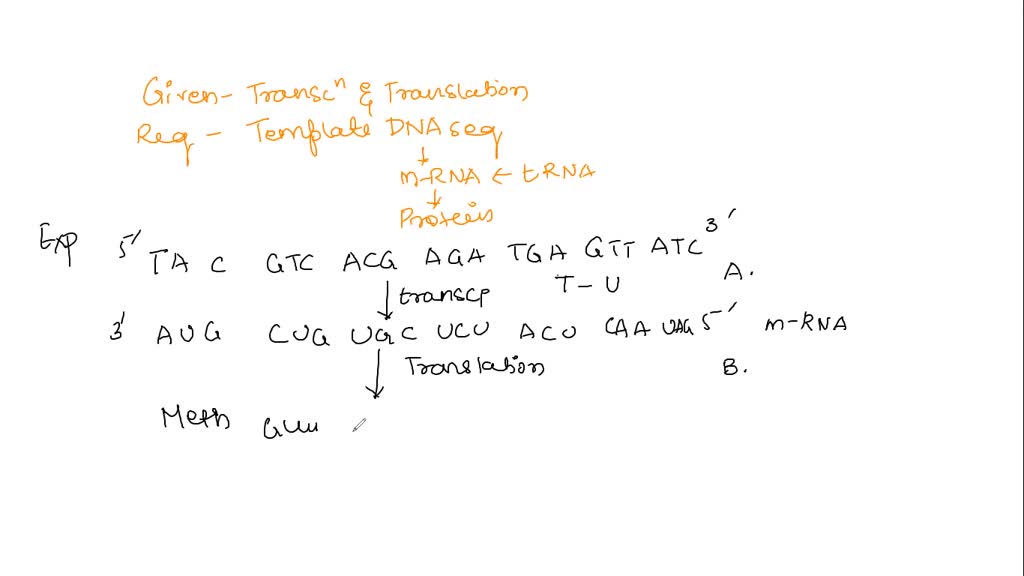 Given - Transcⁿ & Translation
Req - Template DNA seq
↓
m-RNA ← tRNA
↓
Proteins
Exp 5' TAC GTC ACG AGA TGA GTT ATC 3'
A.
↓ transcp T-U
3' AUG CUG UGC UCU ACU CAA UAG 5' m-RNA
↓ Translation
B.
Meth